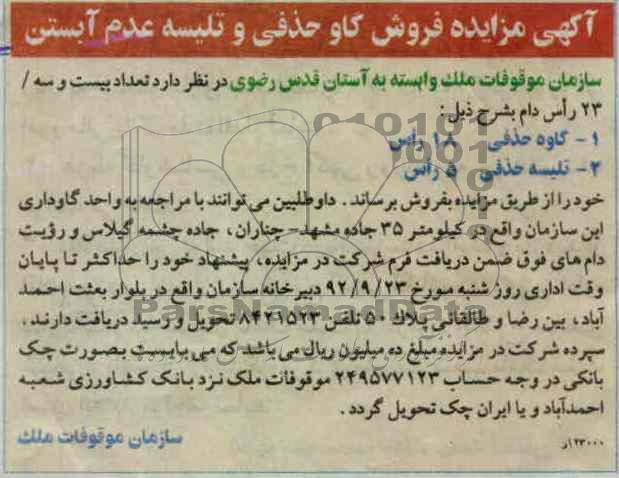 آگهی مزایده فروش گاو حذفی و تلیسه عدم آبستن
سازمان موقوفات ملك وابسته به آستان قدس رضوی در نظر دارد تعداد بیست و سه /
۲۳ رأس دام بشرح ذیل:
۱- گاوه حذفی ۱۸ رأس
۲- تلیسه حذفی ۵ رأس
خود را از طریق مزایده بفروش برساند. داوطلبین می توانند با مراجعه به واحد گاوداری
این سازمان واقع در کیلومتر ۳۵ جاده مشهد- چناران، جاده چشمه گیلاس و رؤیت
دام های فوق ضمن دریافت فرم شرکت در مزایده، پیشنهاد خود را حداکثر تا پایان
وقت اداری روز شنبه مورخ ۹۲/۹/۲۳ دبیرخانه سازمان واقع در بلوار بعثت احمد
آباد، بین رضا و طالقانی پلاك ۵۰ تلفن ۸۴۲۱۵۲۳ تحویل و رسید دریافت دارند.
سپرده شرکت در مزایده مبلغ ده میلیون ریال می باشد که می بایست بصورت چک
بانکی در وجه حساب ۲۴۹۵۷۷۱۲۳ موقوفات ملک نزد بانک کشاورزی شعبه
احمدآباد و یا ایران چک تحویل گردد.
سازمان موقوفات ملك
ParsNamadData